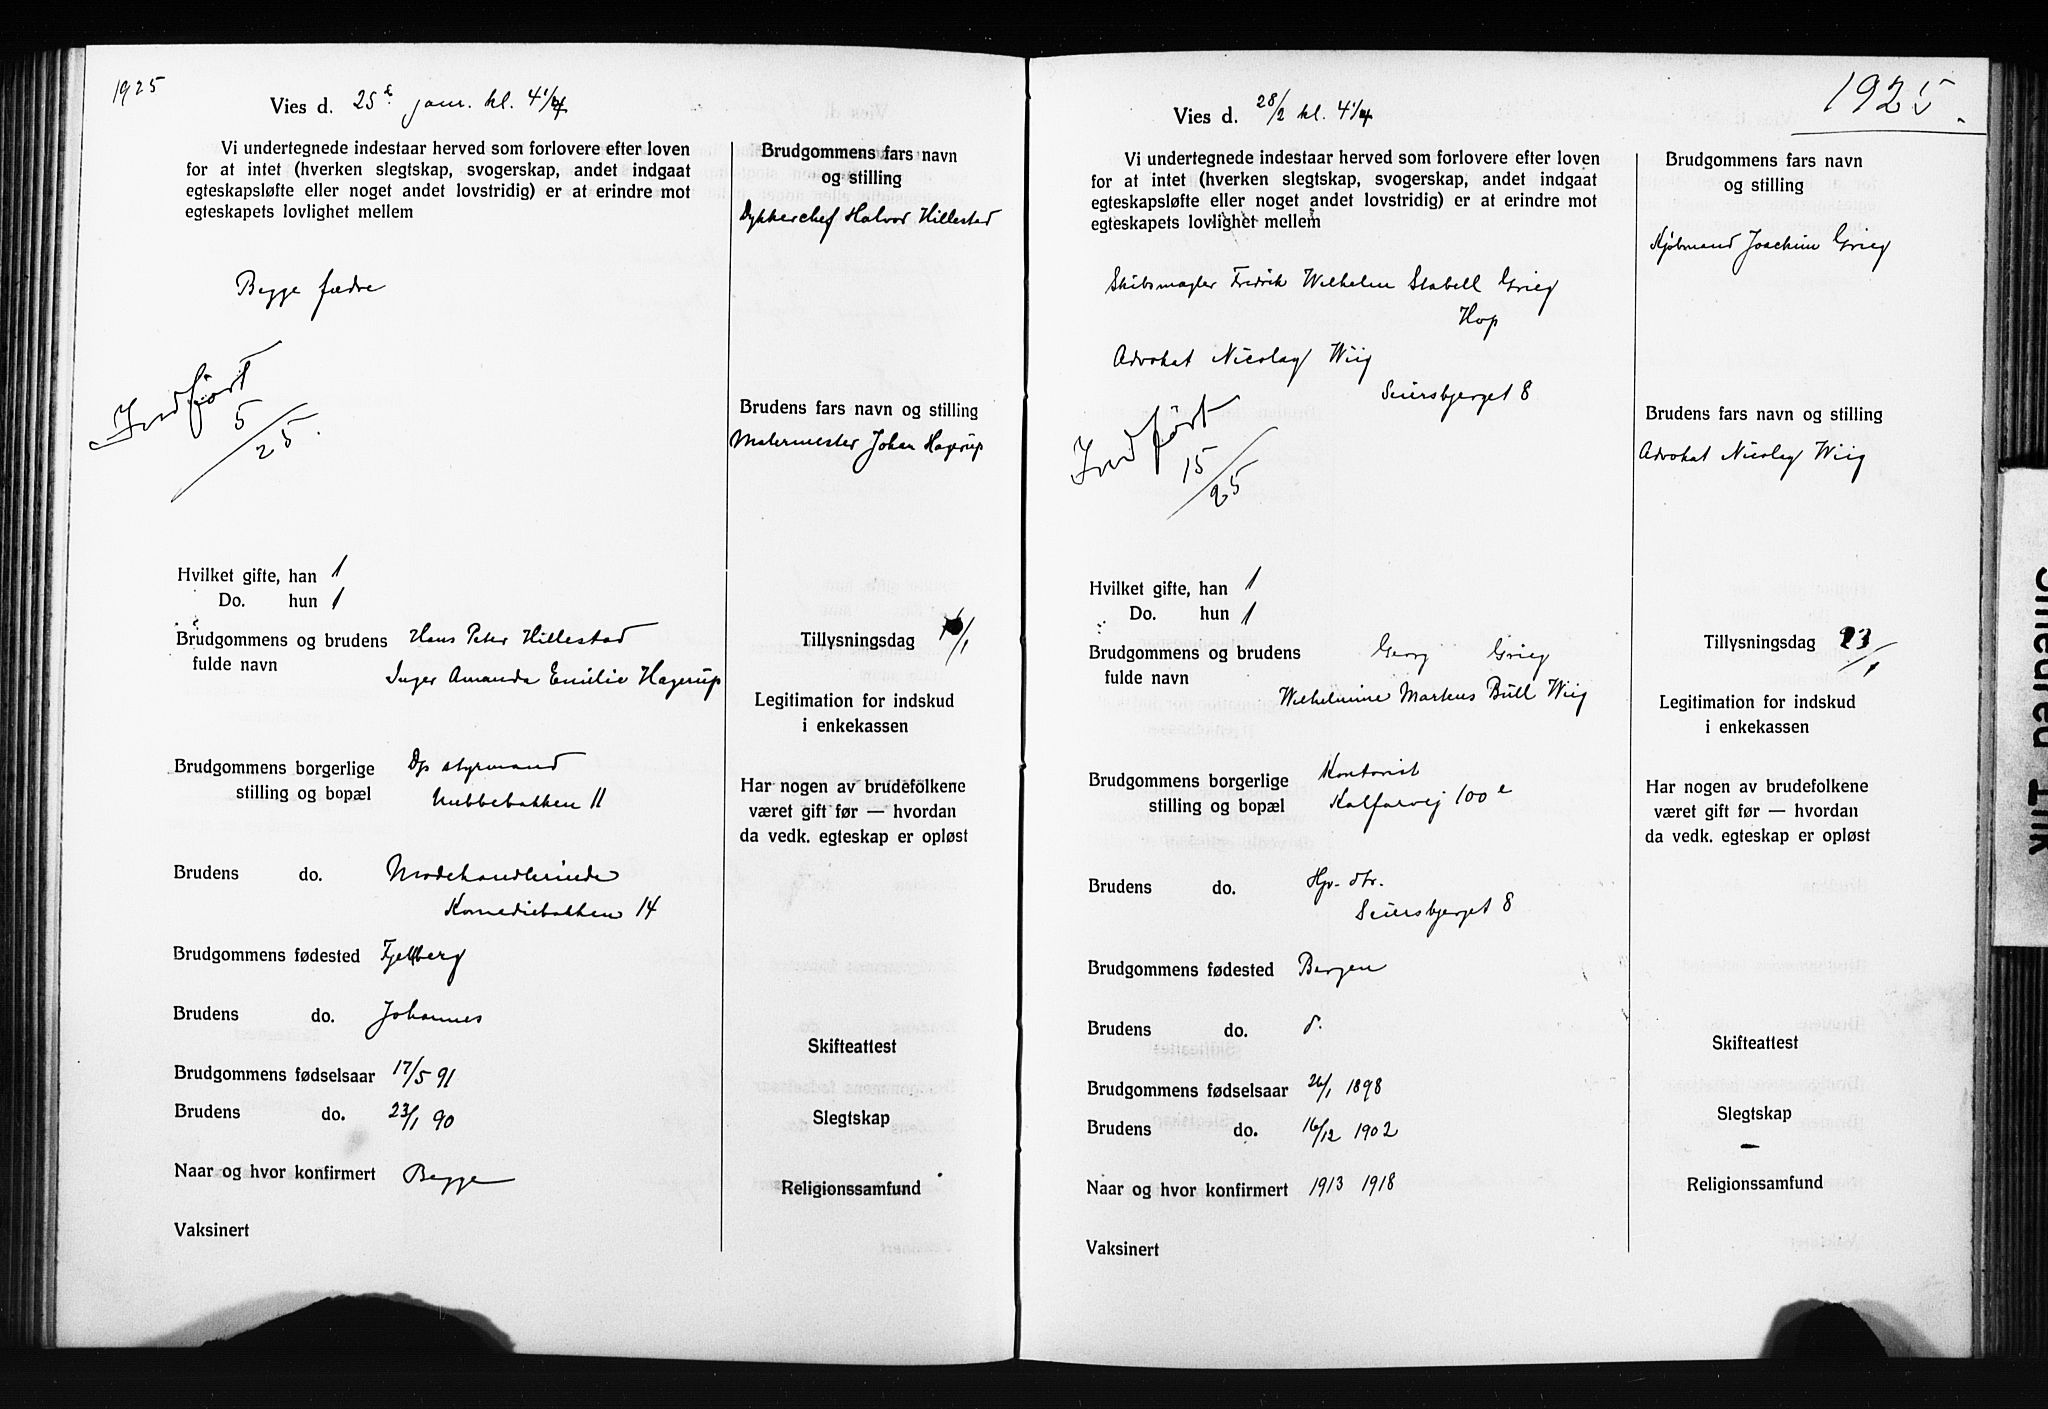 1925
Vies d. 25de janr. kl. 4 1/4
Vi undertegnede indestaar herved som forlovere efter loven
for at intet (hverken slegtskap, svogerskap, andet indgaat
egteskapsløfte eller noget andet lovstridig) er at erindre mot
egteskapets lovlighet mellem
Begge fædre
Indført
5/25.
Hvilket gifte, han 1
Do. hun 1
Brudgommens og brudens Hans Peter Hillestad
fulde navn Inger Amanda Emilie Hagerup
Brudgommens borgerlige Dp styrmand
stilling og bopæl Nubbebakken 11
Brudens do. Modehandlerinde
Komediebakken 14
Brudgommens fødested Fjelberg
Brudens do. Johannes
Brudgommens fødselsaar 17/5 91
Brudens do. 23/1 90
Naar og hvor konfirmert Begge
Vaksinert
Brudgommens fars navn
og stilling
Dykkerchef Halvor Hillestad
Brudens fars navn og stilling
Malermester Johan Hagerup
Tillysningsdag /1
Legitimation for indskud
i enkekassen
Har nogen av brudefolkene
været gift før — hvordan
da vedk. egteskap er opløst
Skifteattest
Slegtskap
Religionssamfund
1925.
Vies d. 28/2 kl. 4 1/4
Vi undertegnede indestaar herved som forlovere efter loven
for at intet (hverken slegtskap, svogerskap, andet indgaat
egteskapsløfte eller noget andet lovstridig) er at erindre mot
egteskapets lovlighet mellem
Skibsmægler Fredrik Wilhelm Stabell Grieg
Hop
Advokat Nicolay Wiig
Seiersbjerget 8
Indført
15/25
Hvilket gifte, han 1
Do. hun 1
Brudgommens og brudens Georg Grieg
fulde navn Wilhelmine Markus Bull Wiig
Brudgommens borgerlige Kontorist
stilling og bopæl Kalfarvej 100e
Brudens do. Hjv. dtr.
Seiersbjerget 8
Brudgommens fødested Bergen
Brudens do. d.
Brudgommens fødselsaar 26/1 1898
Brudens do. 16/12 1902
Naar og hvor konfirmert 1913 1918
Vaksinert
Brudgommens fars navn
og stilling
Kjøbmand Joachim Grieg
Brudens fars navn og stilling
Advokat Nicolay Wiig
Tillysningsdag 23/1
Legitimation for indskud
i enkekassen
Har nogen av brudefolkene
været gift før — hvordan
da vedk. egteskap er opløst
Skifteattest
Slegtskap
—
Religionssamfund